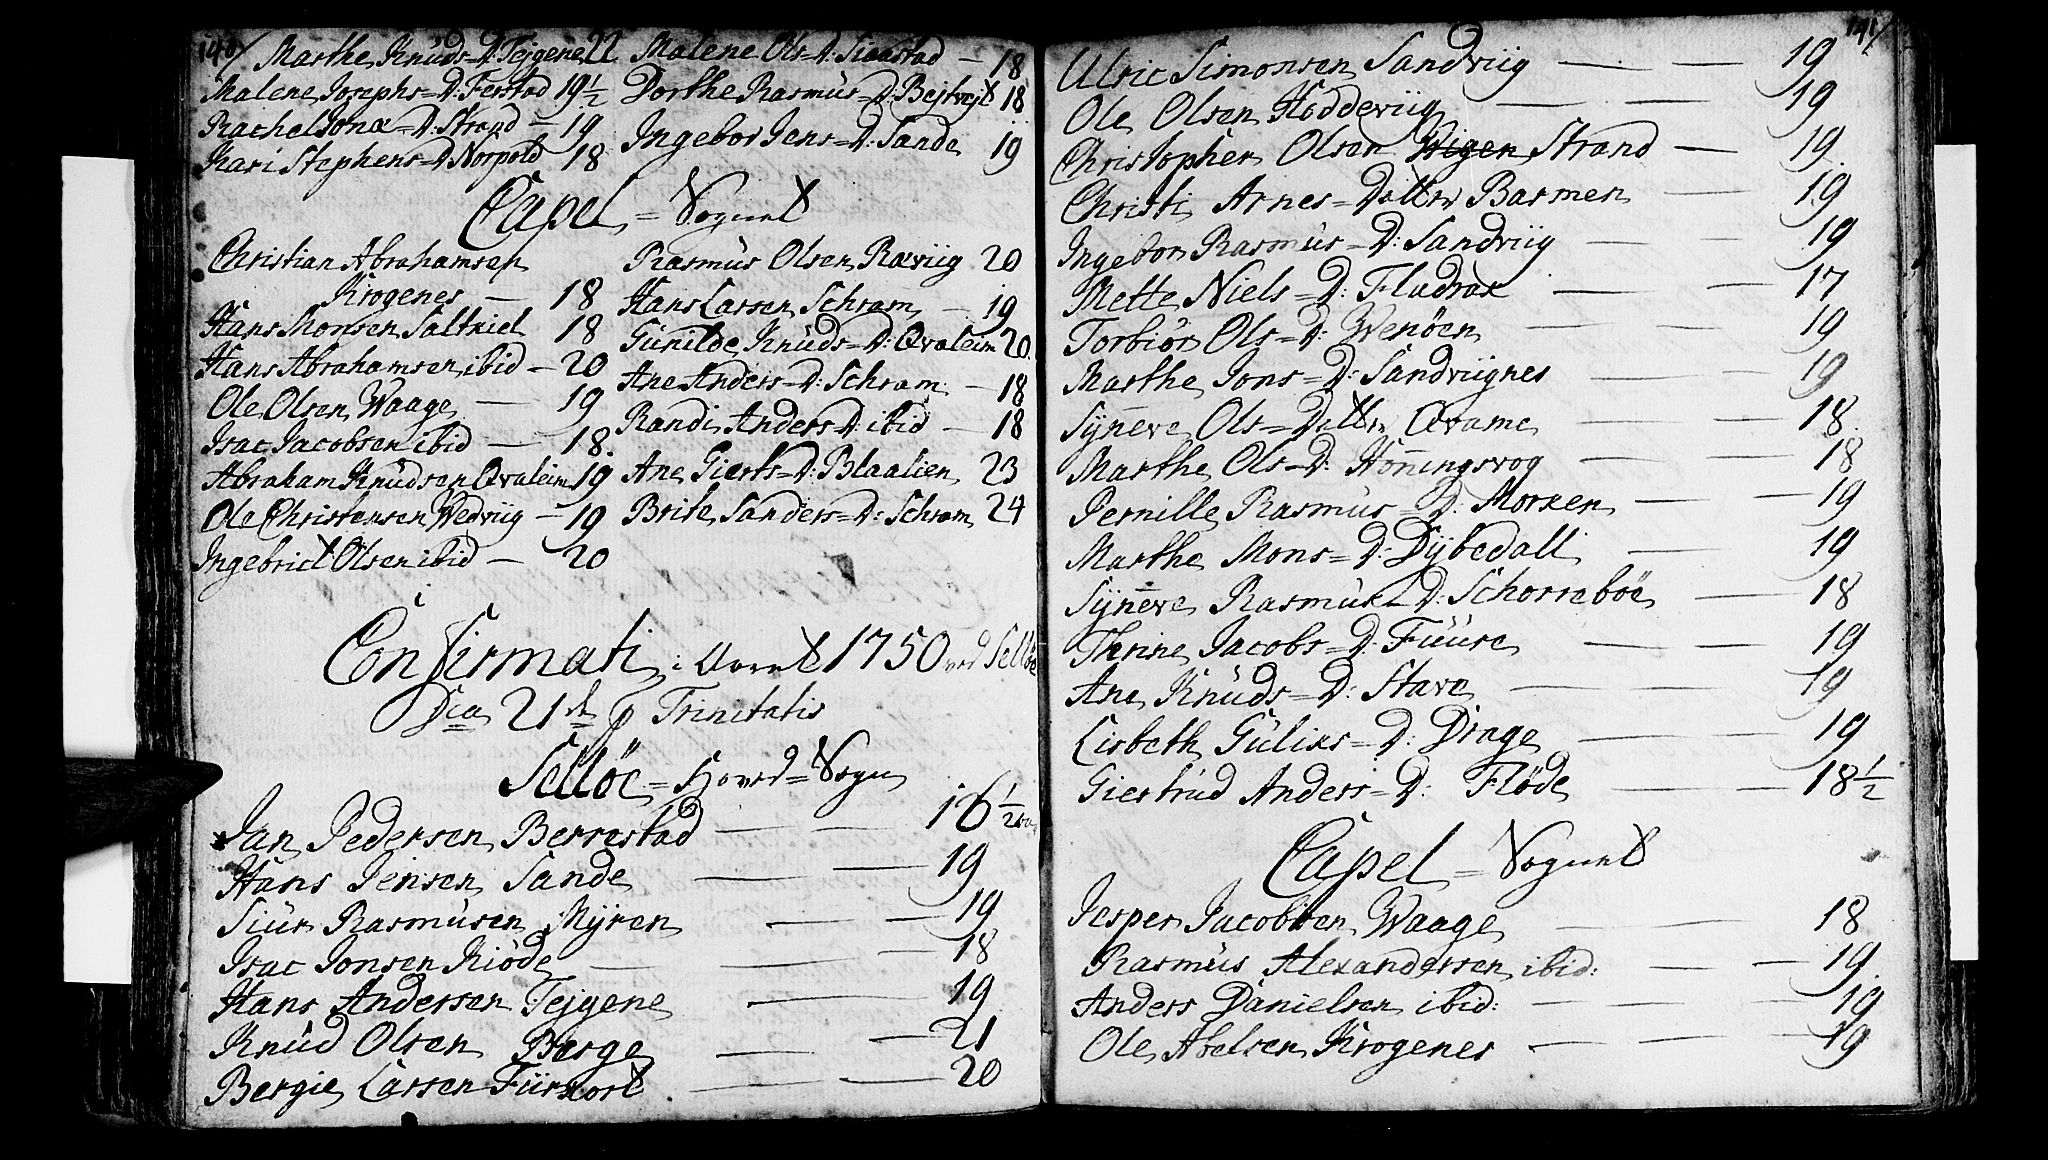 140/
Marthe Knüds=D: Tejgene 22
Malene Josephs=D: Ferstad 19 1/2
Rachel Jonæ=D: Strand — 19
Kari Stephens=D Norpold 18
Malene Ols=D: — 18
Dorthe Rasmüs=D: 18
Ingebor Jens=D: Sande 19
Capel = Sognet
Christian Abrahamsen
Krogenes — 18
Hans Monsen Saltkiel 18
Hans Abrahamsen ibid — 20
Ole Olsen Waage — 19
Isac Jacobsen ibid — 18.
Abraham Knüdsen Qvaleim 19
Ole Christensen Wedviig — 19
Ingebrict Olsen ibid — 20
Rasmüs Olsen Ræviig 20
Hans Larsen Schram — 19
Günilde Knüds=D: Qvaleim 20.
Ane Anders=D: Schram — 18
Randi Anders=D: ibid — 18
Ane Gierts=D: Blaalien 23
Brite Sanders=D: Schram 24
Confirmati i Aaret 1750 ved Selløe
Dca 21 d p Trinitatis
Selløe = Hoved=Sogn
Jan Pedersen Berrestad — — 18 1/2
Hans Jensen Sande — — 19
Siur Rasmüsen Myren — — 19
Isac Jonsen Kiøde — — 18
Hans Andersen Tejgene — — 19
Knüd Olsen Berge — — 21
Bergie Larsen Fürskort — — 20
141/
Ulric Simonsen Sandviig — — 19
Ole Olsen Hoddeviig — — 19
Christopher Olsen Wigen Strand — 19
Christi Arnes=Datter Barmen — — 19
Ingebor Rasmüs=D: Sandviig — — 19
Mette Niels=D: Fladräx — — 17
Torbiör Ols=D: Wenöen — — 19
Marthe Jons=D: Sandviignes — — 19
Syneve Ols=Datter Qvame — — 18.
Marthe Ols=D: Honingsvog — — 18
Pernille Rasmus=D: Morken — — 19
Marthe Mons=D: Dybedall — — 19
Syneve Rasmüs=D: Schorrebøe — — 18
Thrine Jacobs=D: Füüre — — 19
Ane Knüds=D: Stave — — 19
Lisbeth Güliks=D: Drage — — 19
Giertrüd Anders=D: Flöde — — 18 1/2
Capel = Sognet
Jesper Jacobsen Waage — — 18
Rasmüs Alexandersen ibid: — — 19
Anders Danielsen ibid: — — 19
Ole Abelsen Krogenes — — 19